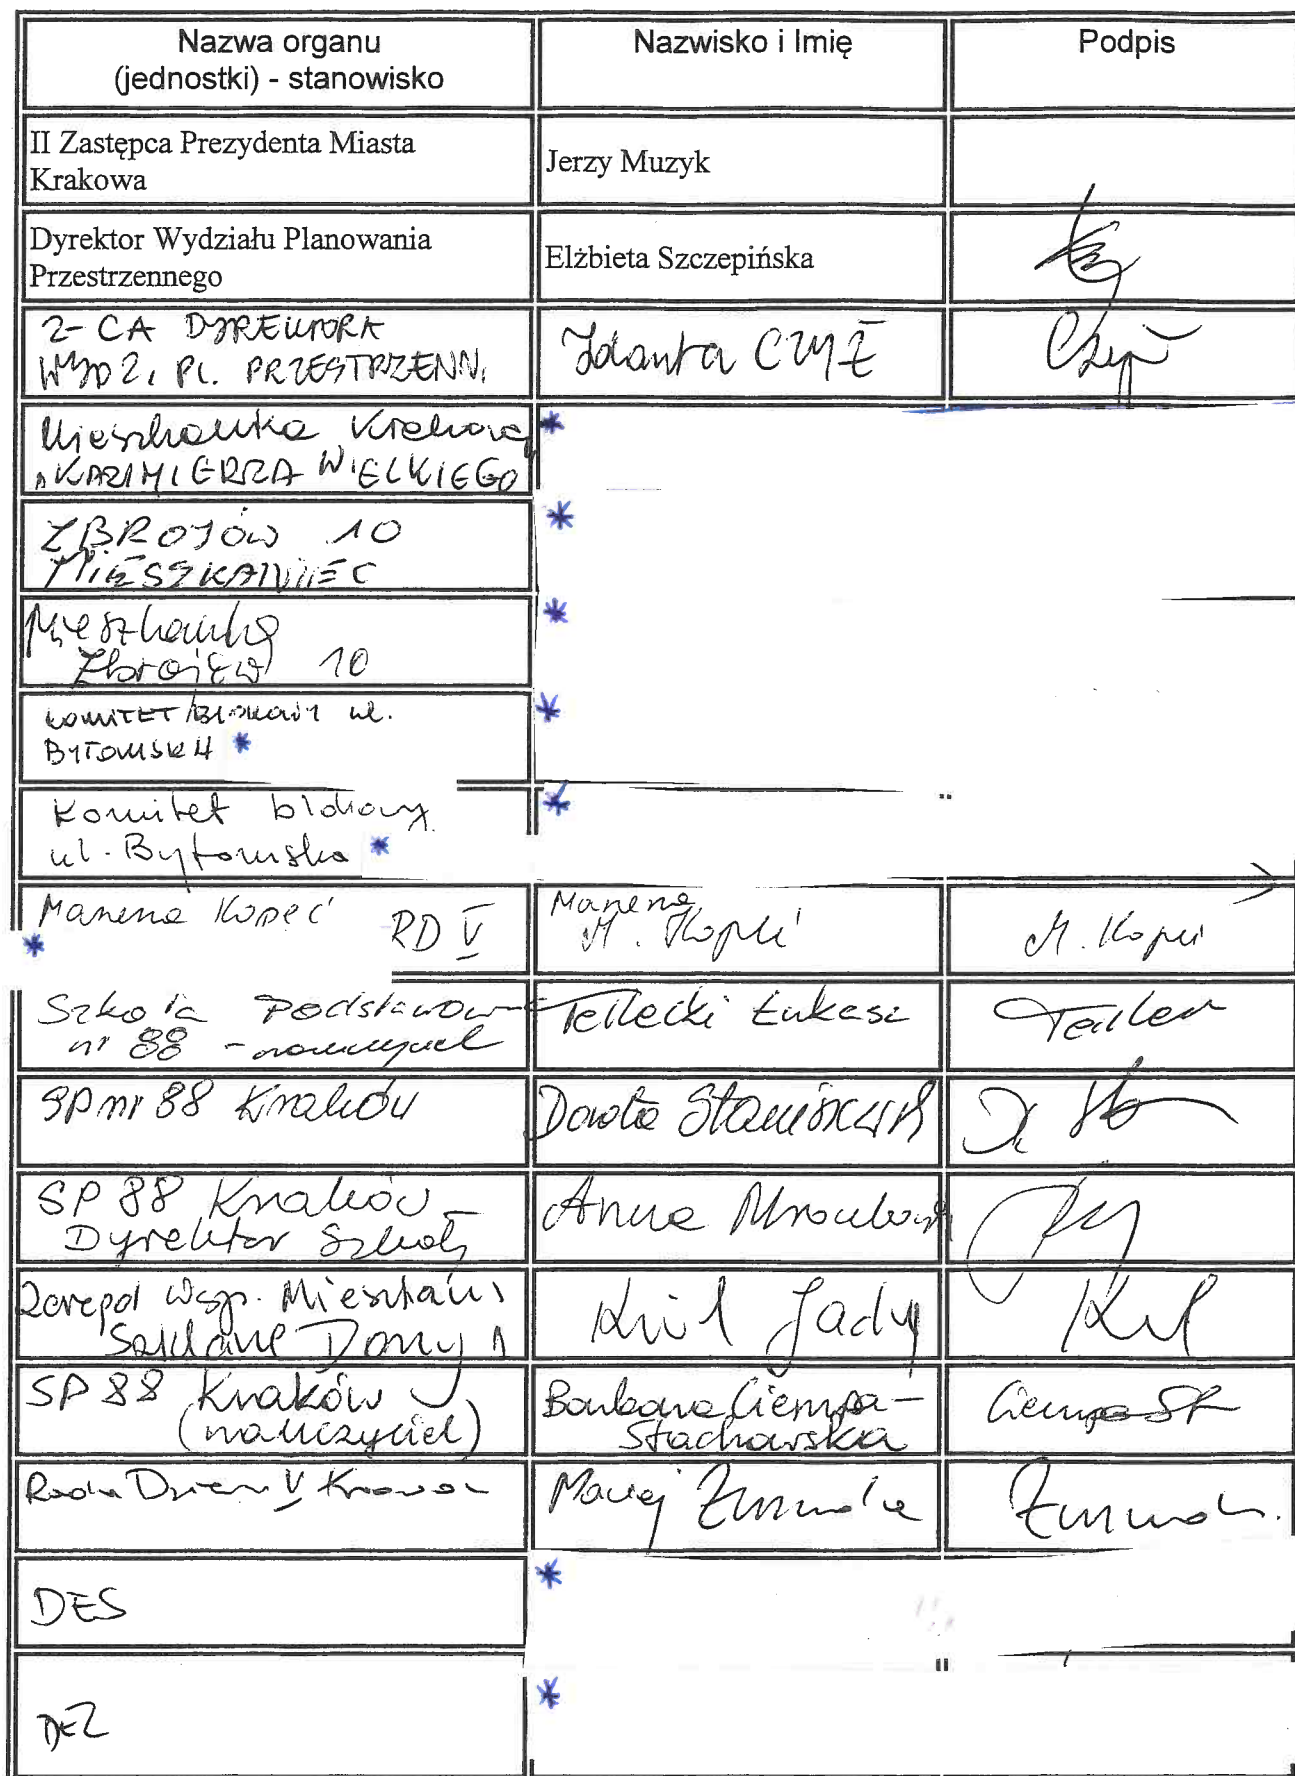 Nazwa organu
(jednostki) - stanowisko
Nazwisko i Imię
Podpis
II Zastępca Prezydenta Miasta
Krakowa
Jerzy Muzyk
Dyrektor Wydziału Planowania
Przestrzennego
Elżbieta Szczepińska
Z-CA DYREKTORA
WYDZ. PL. PRZESTRZENN.
Jolanta CZYŻ
Mieszkanka Krakowa
"KAZIMIERZA WIELKIEGO"
*
ZBROJÓW 10
MIESZKANIEC
*
Mieszkanka
Zbrojów 10
*
KOMITET BLOKOWY ul.
BYTOMSKA *
*
Komitet blokowy
ul. Bytomska *
*
Marena Kopeć
RD V
*
Marena
M. Kopeć
M. Kopeć
Szkoła Podstawowa
nr 88 - nauczyciel
Tellecki Łukasz
SP nr 88 Kraków
Dorota
SP 88 Kraków
Dyrektor Szkoły
Anna
Wsp. Mieszkań.
Szklane Domy 1
Król
SP 88 Kraków
(nauczyciel)
Barbara Ciempa-
Stachowska
Rada Dzieln V
Maciej
DES
*
DEZ
*